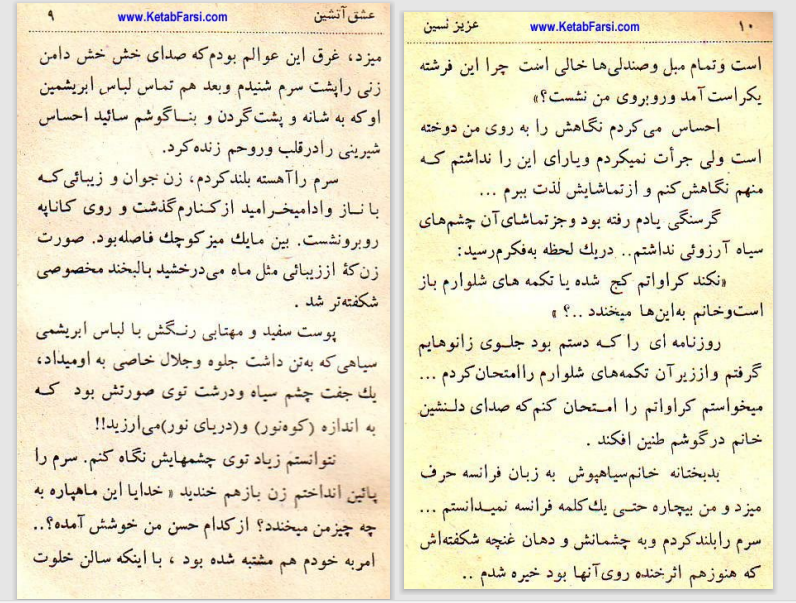 عشق آتشین
www.KetabFarsi.com
۹
میزد، غرق این عوالم بودم‌که صدای خش خش دامن
زنی راپشت سرم شنیدم وبعد هم تماس لباس ابریشمین
اوکه به شانه و پشت‌گردن و بنــاگوشم سائید احساس
شیرینی رادرقلب وروحم زنده‌کرد.
سرم راآهسته بلندکردم، زن جوان و زیبائی‌کـه
با نـاز وادامیخـرامید ازکـنارم‌گذشت و روی کاناپه
روبرونشست. بین مایك میز کوچك فاصله‌بود. صورت
زن‌که‌ٔ اززیبائی مثل ماه می‌درخشید بالبخند مخصوصی
شکفته‌تر شد .
پوست سفید و مهتابی رنـگش با لباس ابریشمی
سیاهی‌که به‌تن داشت جلوه وجلال خاصی به اومیداد،
یك جفت چشم سیاه ودرشت توی صورتش بود کـه
به اندازه (کوه‌نور) و(دریای نور)می‌ارزید!!
نتوانستم زیاد توی چشمهایش نگاه کنم. سرم را
پائین انداختم زن بازهم خندید « خدایا این ماهپاره به
چه چیزمن میخندد؟ ازکدام حسن من خوشش آمده؟..
امربه خودم هم مشتبه شده بود ، با اینکه سالن خلوت
۱۰
www.KetabFarsi.com
عزیز نسین
است وتمام مبل وصندلی‌ها خالی است چرا این فرشته
یکراست آمد وروبروی من نشست؟»
احساس می‌کردم نگاهش را به روی من دوخته
است ولی جرأت نمیکردم ویارای این را نداشتم کـه
منهم نگاهش‌کنم و ازتماشایش لذت ببرم ...
گرسنگی یادم رفته بود وجزتماشای‌آن چشم‌های
سیاه آرزوئی نداشتم.. دریك لحظه به‌فکرم‌رسید:
«نکند کراواتم کج شده یا تکمه های شلوارم باز
است‌وخانم به‌این‌ها میخندد ..؟ »
روزنامه ای را کـه دستم بود جلـوی زانوهایم
گرفتم واززیرآن تکمه‌های شلوارم راامتحان‌کردم ...
میخواستم کراواتم را امـتحان کنم‌که صدای دلـنشین
خانم درگوشم طنین افکند .
بدبختانه خانم‌سیاهپوش به زبان فرانسه حرف
میزد و من بیچاره حتـی یك‌کلمه فرانسه نمیـدانستم ...
سرم رابلندکردم وبه چشمانش و دهان غنچه شکفته‌اش
که هنوزهم اثرخنده روی‌آنها بود خیره شدم ..